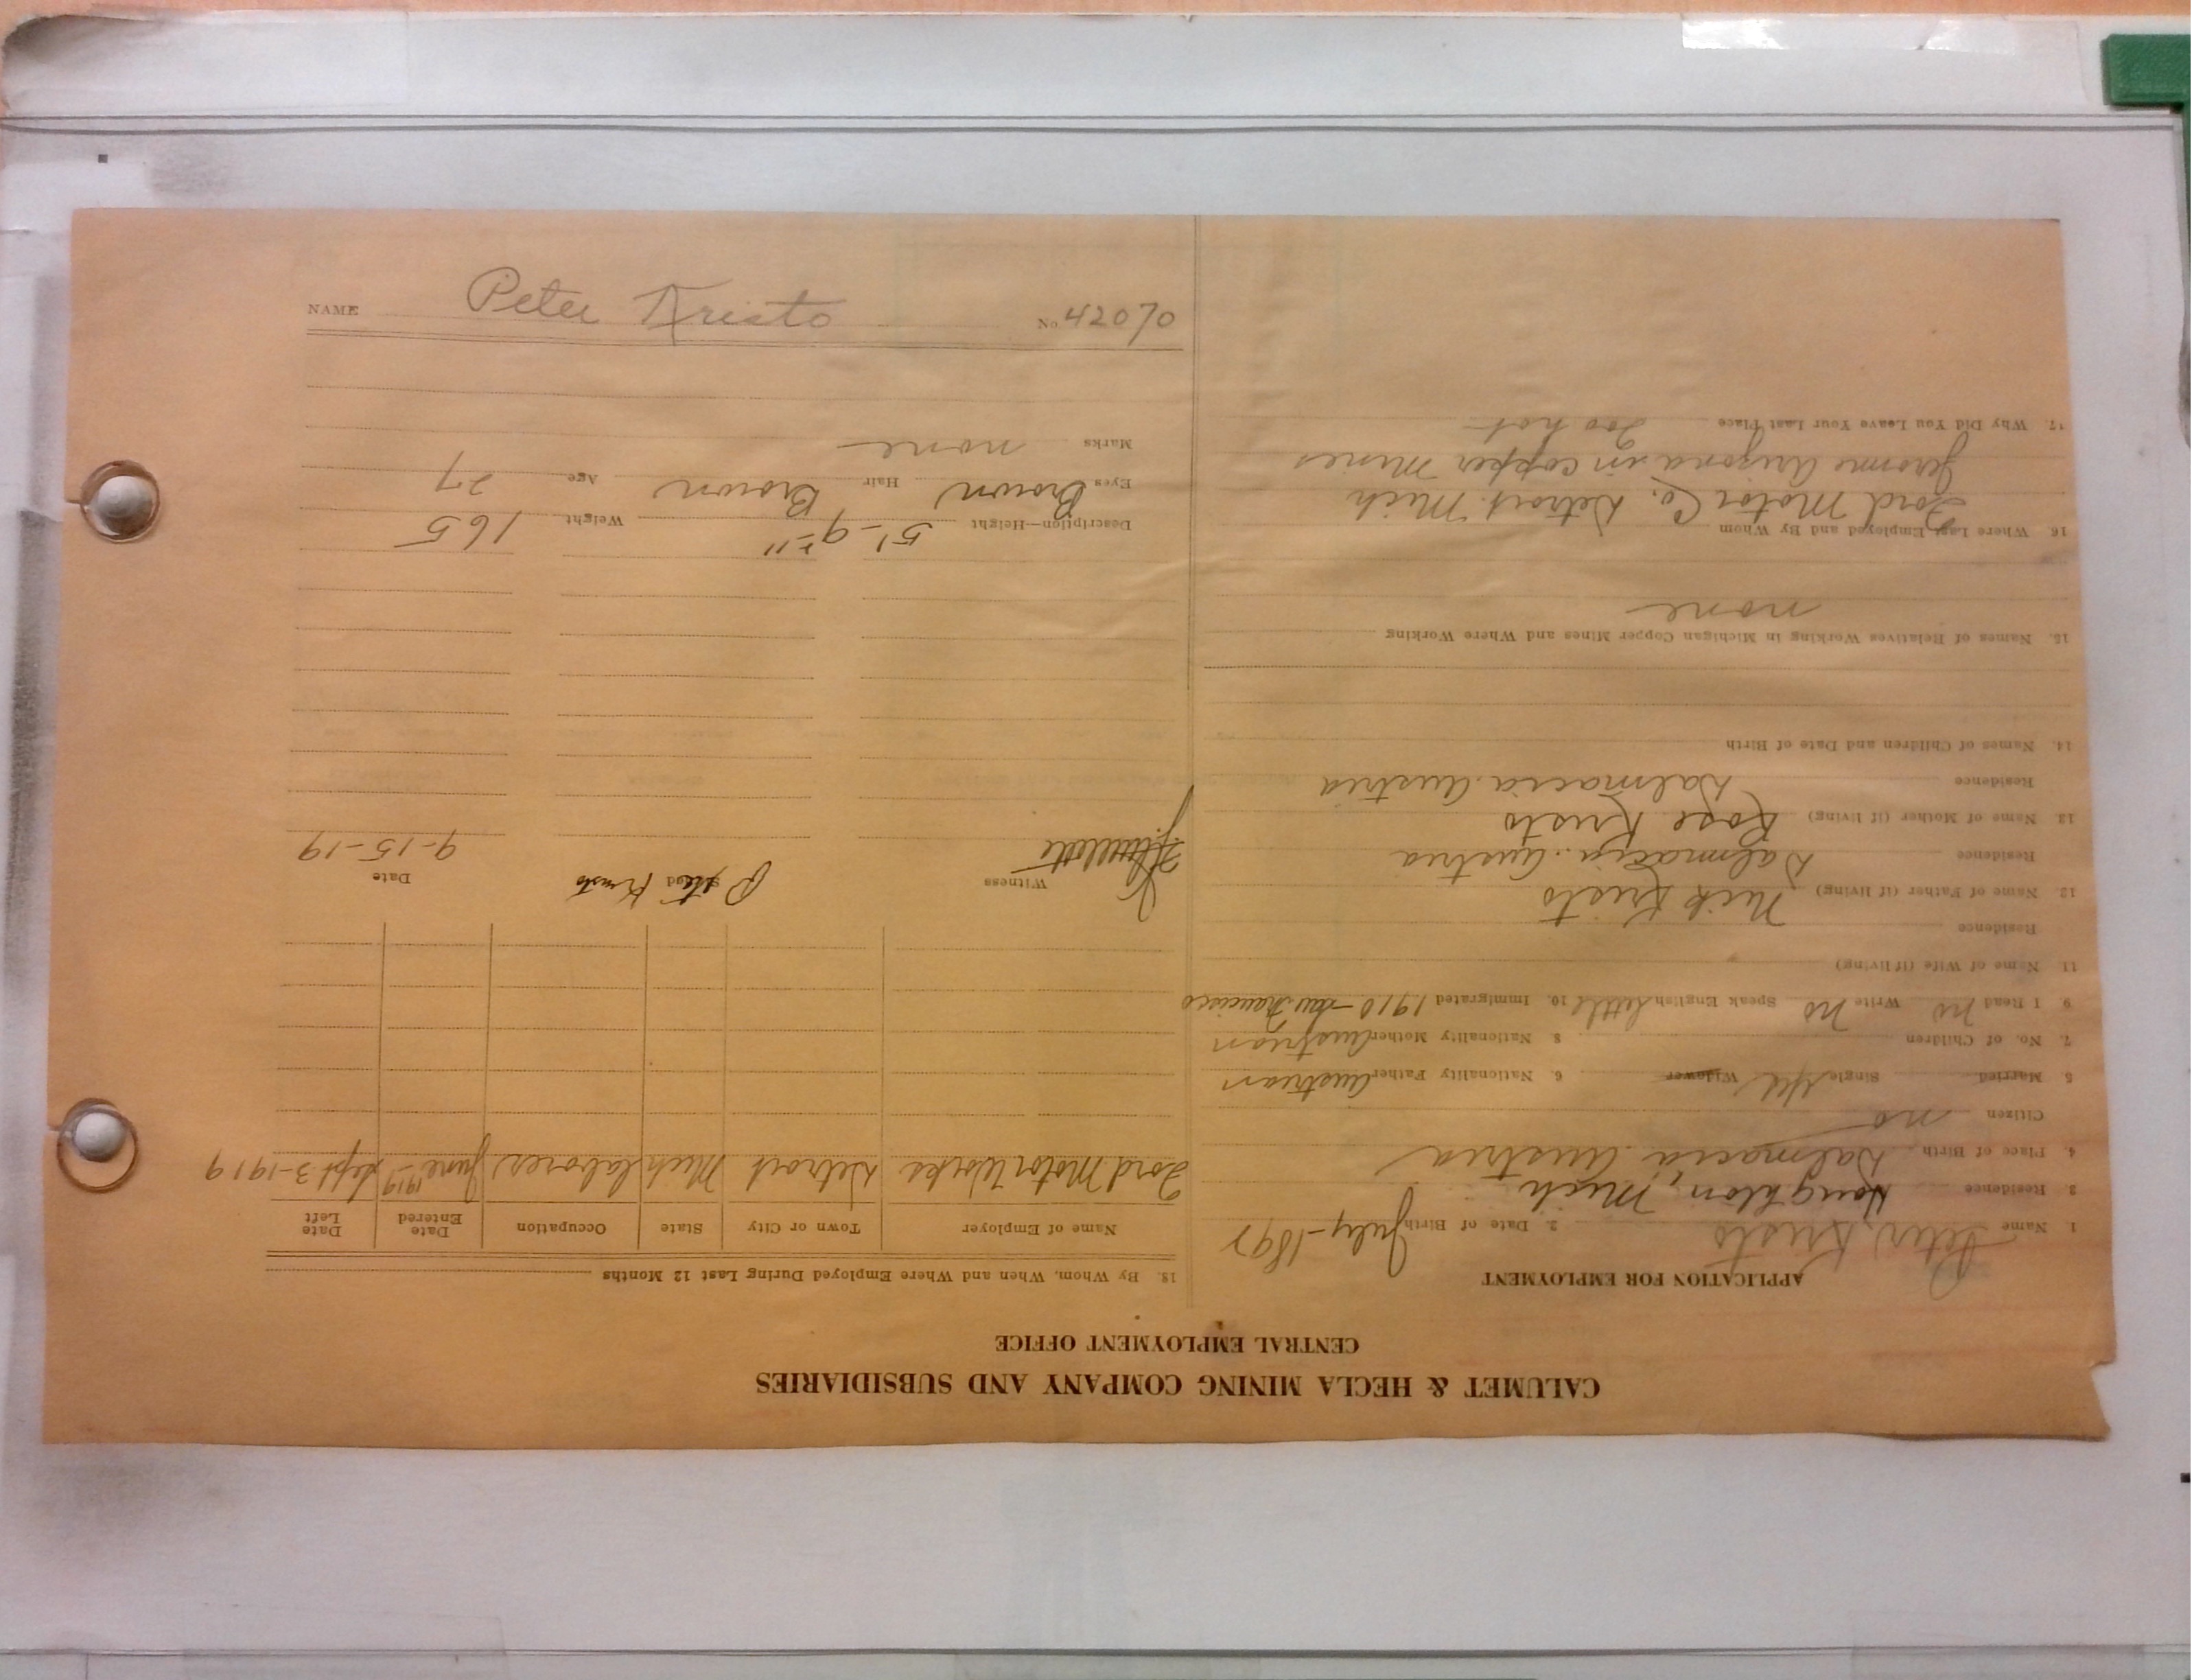 CALUMET & HECLA MINING COMPANY AND SUBSIDIARIES
CENTRAL EMPLOYMENT OFFICE
APPLICATION FOR EMPLOYMENT
1. Name Peter Kristo 2. Date of Birth July-1892
3. Residence Houghton, Mich
4. Place of Birth Dalmacia Austria
Citizen no
5. Married Single yes Widower 6. Nationality Father Austrian
7. No. of Children 8 Nationality Mother Austrian
9. I Read no Write no Speak English little 10. Immigrated 1910-San Francisco
11. Name of Wife (if living)
Residence
12. Name of Father (if living) Nick Kristo
Residence Dalmacia. Austria
13. Name of Mother (if living) Rose Kristo
Residence Dalmacia. Austria
14. Names of Children and Date of Birth
15. Names of Relatives Working in Michigan Copper Mines and Where Working
none
16 Where Last Employed and By Whom
Ford Motor Co. Detroit. Mich
Jerome Arizona in copper mines
17. Why Did You Leave Your Last Place Too hot
18. By Whom, When and Where Employed During Last 12 Months
Name of Employer Town or City State Occupation Date Entered Date Left
Ford Motor Works Detroit Mich laborer June-1919 Sept 3-1919
Witness Signed Date
Pete Kristo 9-15-19
Description—Height 5'-9½" Weight 165
Eyes Brown Hair Brown Age 27
Marks none
NAME Peter Kristo No. 42070